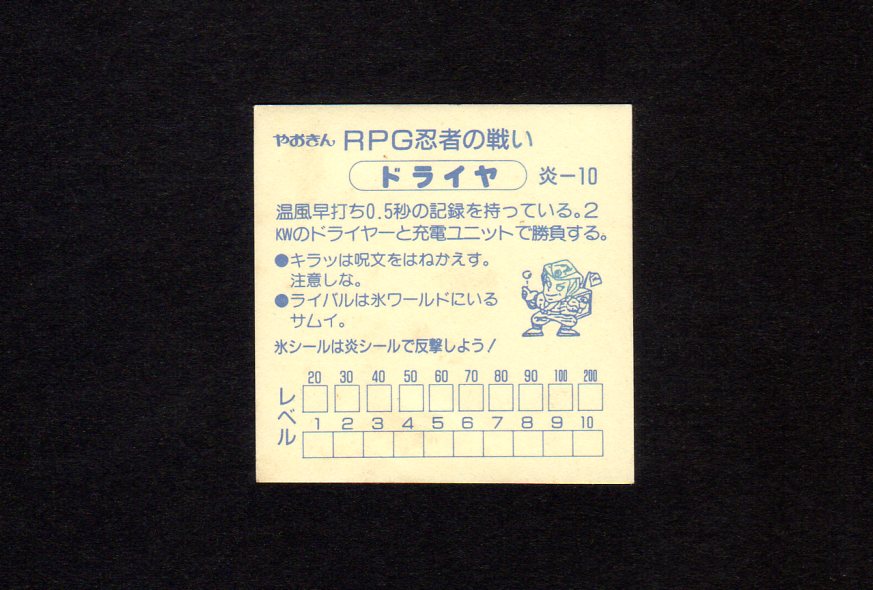 やおきん RPG忍者の戦い
ドライヤ 炎ー10
温風早打ち0.5秒の記録を持っている。2
KWのドライヤーと充電ユニットで勝負する。
●キラッは呪文をはねかえす。
注意しな。
●ライバルは氷ワールドにいる
サムイ。
氷シールは炎シールで反撃しよう!
レベル
20 30 40 50 60 70 80 90 100 200
1 2 3 4 5 6 7 8 9 10